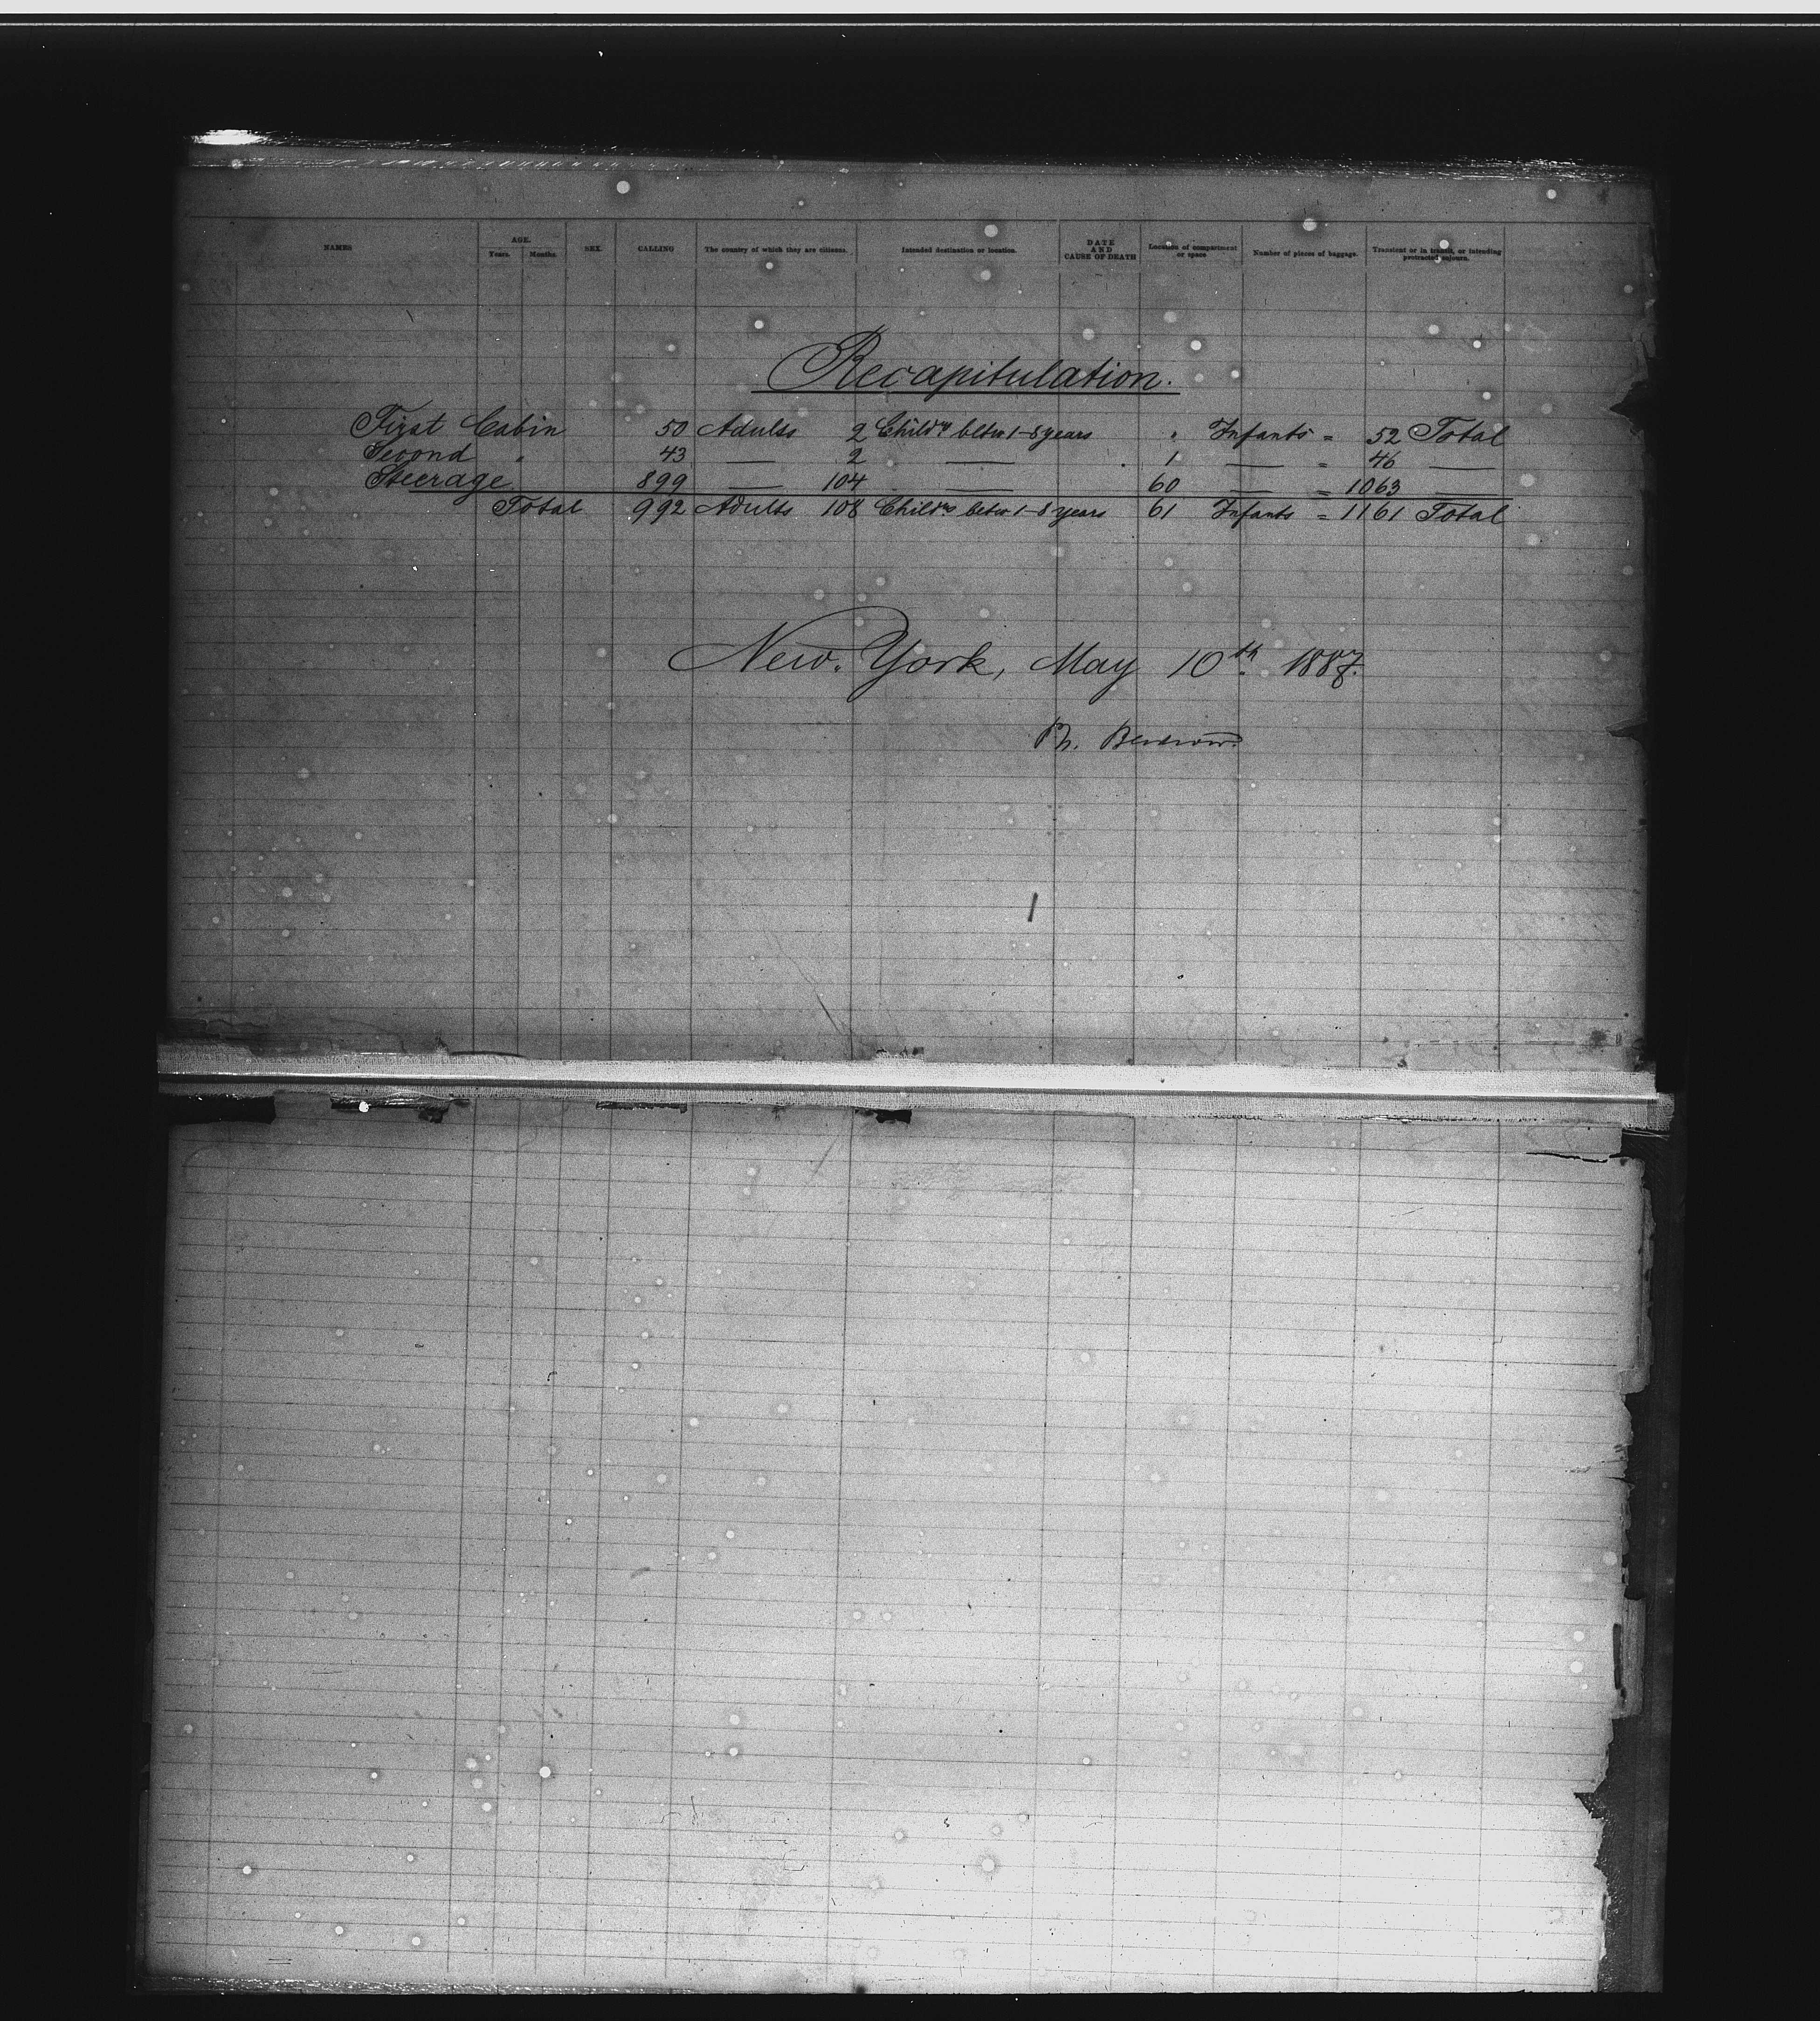 NAMES AGE. SEX. CALLING The country of which they are citizens. Intended destination or location. DATE AND CAUSE OF DEATH Location of compartment or space Number of pieces of baggage. Transient or in transit, or intending protracted sojourn.
Years. Months.
Recapitulation.
First Cabin 50 Adults 2 Childrn betw 1-8 years " Infants = 52 Total
Second " 43 — 2 — 1 — = 46 —
Steerage 899 — 104 — 60 — = 1063 —
Total 992 Adults 108 Childrn betw 1-8 years 61 Infants = 1161 Total
New York, May 10th 1887.